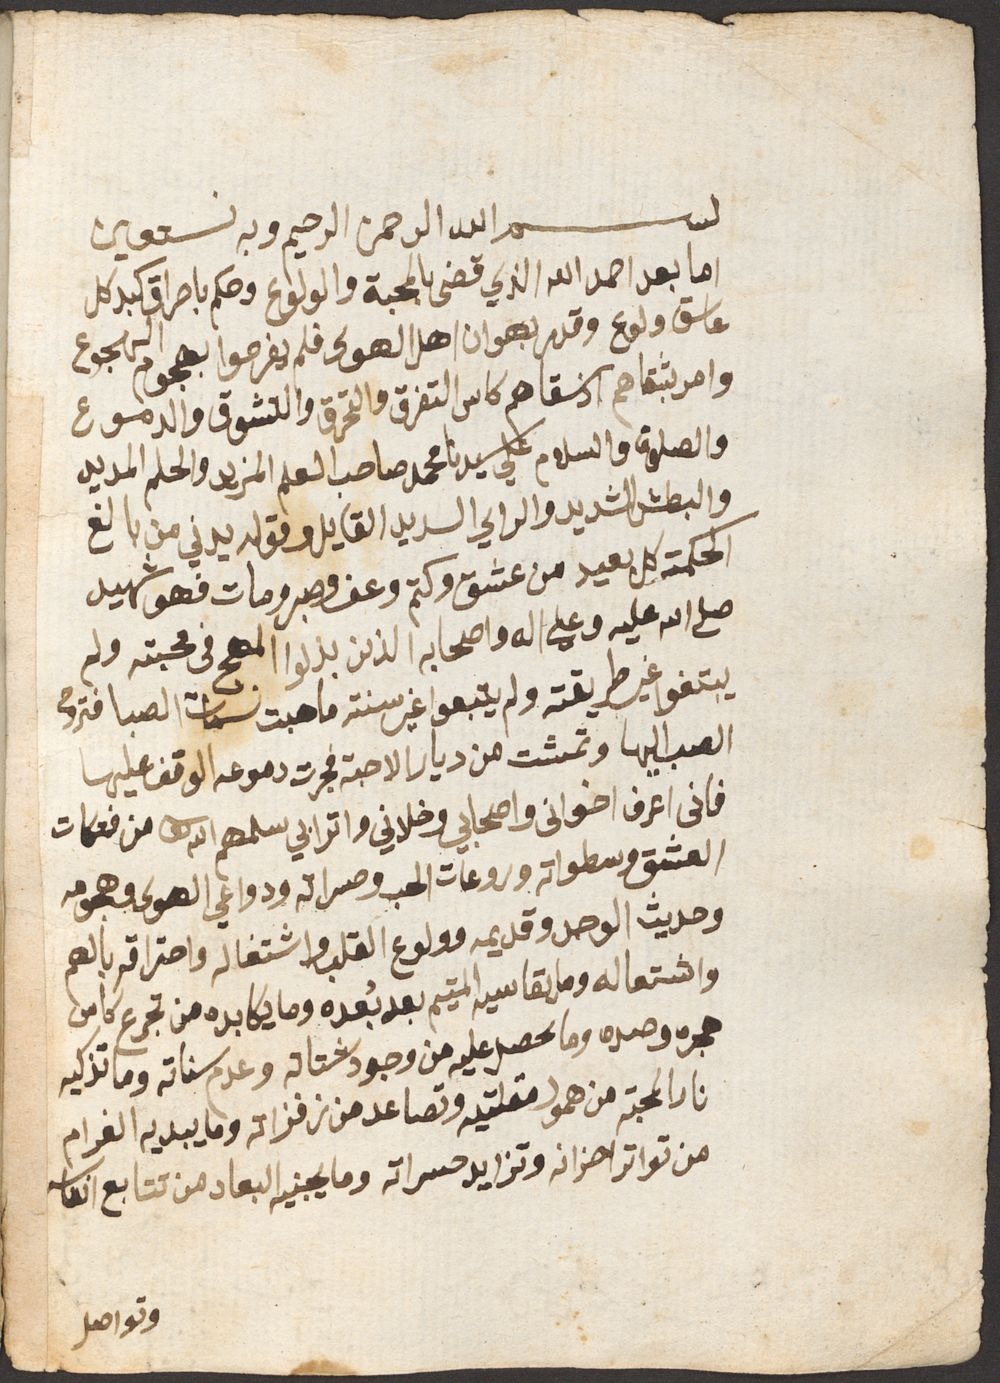 بسم الله الرحمن الرحيم وبه نستعين
اما بعد احمد الله الذي قضى بالمحبة والولوع وحكم باحراق كبد كل
عاشق ولوع وقدر بهوان اهل الهوى فلم يفرحوا بهجوم الهجوع
وامر بشقاهم اذ سقاهم كاس التفرق والتحرق والتشوق والدموع
والصلاة والسلام على سيدنا محمد صاحب العلم المزيد والحلم المديد
والبطش الشديد والراي السديد القايل وقوله يدني من بالغ
الحكمة كل بعيد من عشق وكتم وعف وصبر ومات فهو شهيد
صلى الله عليه وعلى اله واصحابه الذين بذلوا المهج في محبته ولم
يبتغوا غير طريقته ولم يتبعوا غير سنته ما هبت نسمات الصبا فتروح
الصب اليها وتمشت من ديار الاحبة فجرت دموعه الوقف عليها
فانى اعرف اخوانى واصحابي وخلاني واترابي سلمهم الله من فعكات
العشق وسطواته وروعات الحب وحسراته ودواعي الهوى وهجومه
وحديث الوجد وقديمه وولوع القلب واشتغاله واحتراقه بالهم
واشتعاله وما يقاسيه المتيم بعد بُعده وما يكابده من تجرع كاس
هجره وصده وما يحصل عليه من وجود شتاته وعدم سناته وما تذكيه
نار المحبة من همول مقلتيه وتصاعد من زفراته وما يبديه الغرام
من تواتر احزانه وتزايد حسراته وما يجنيه البعاد من تتابع انفاسه
وتواصل